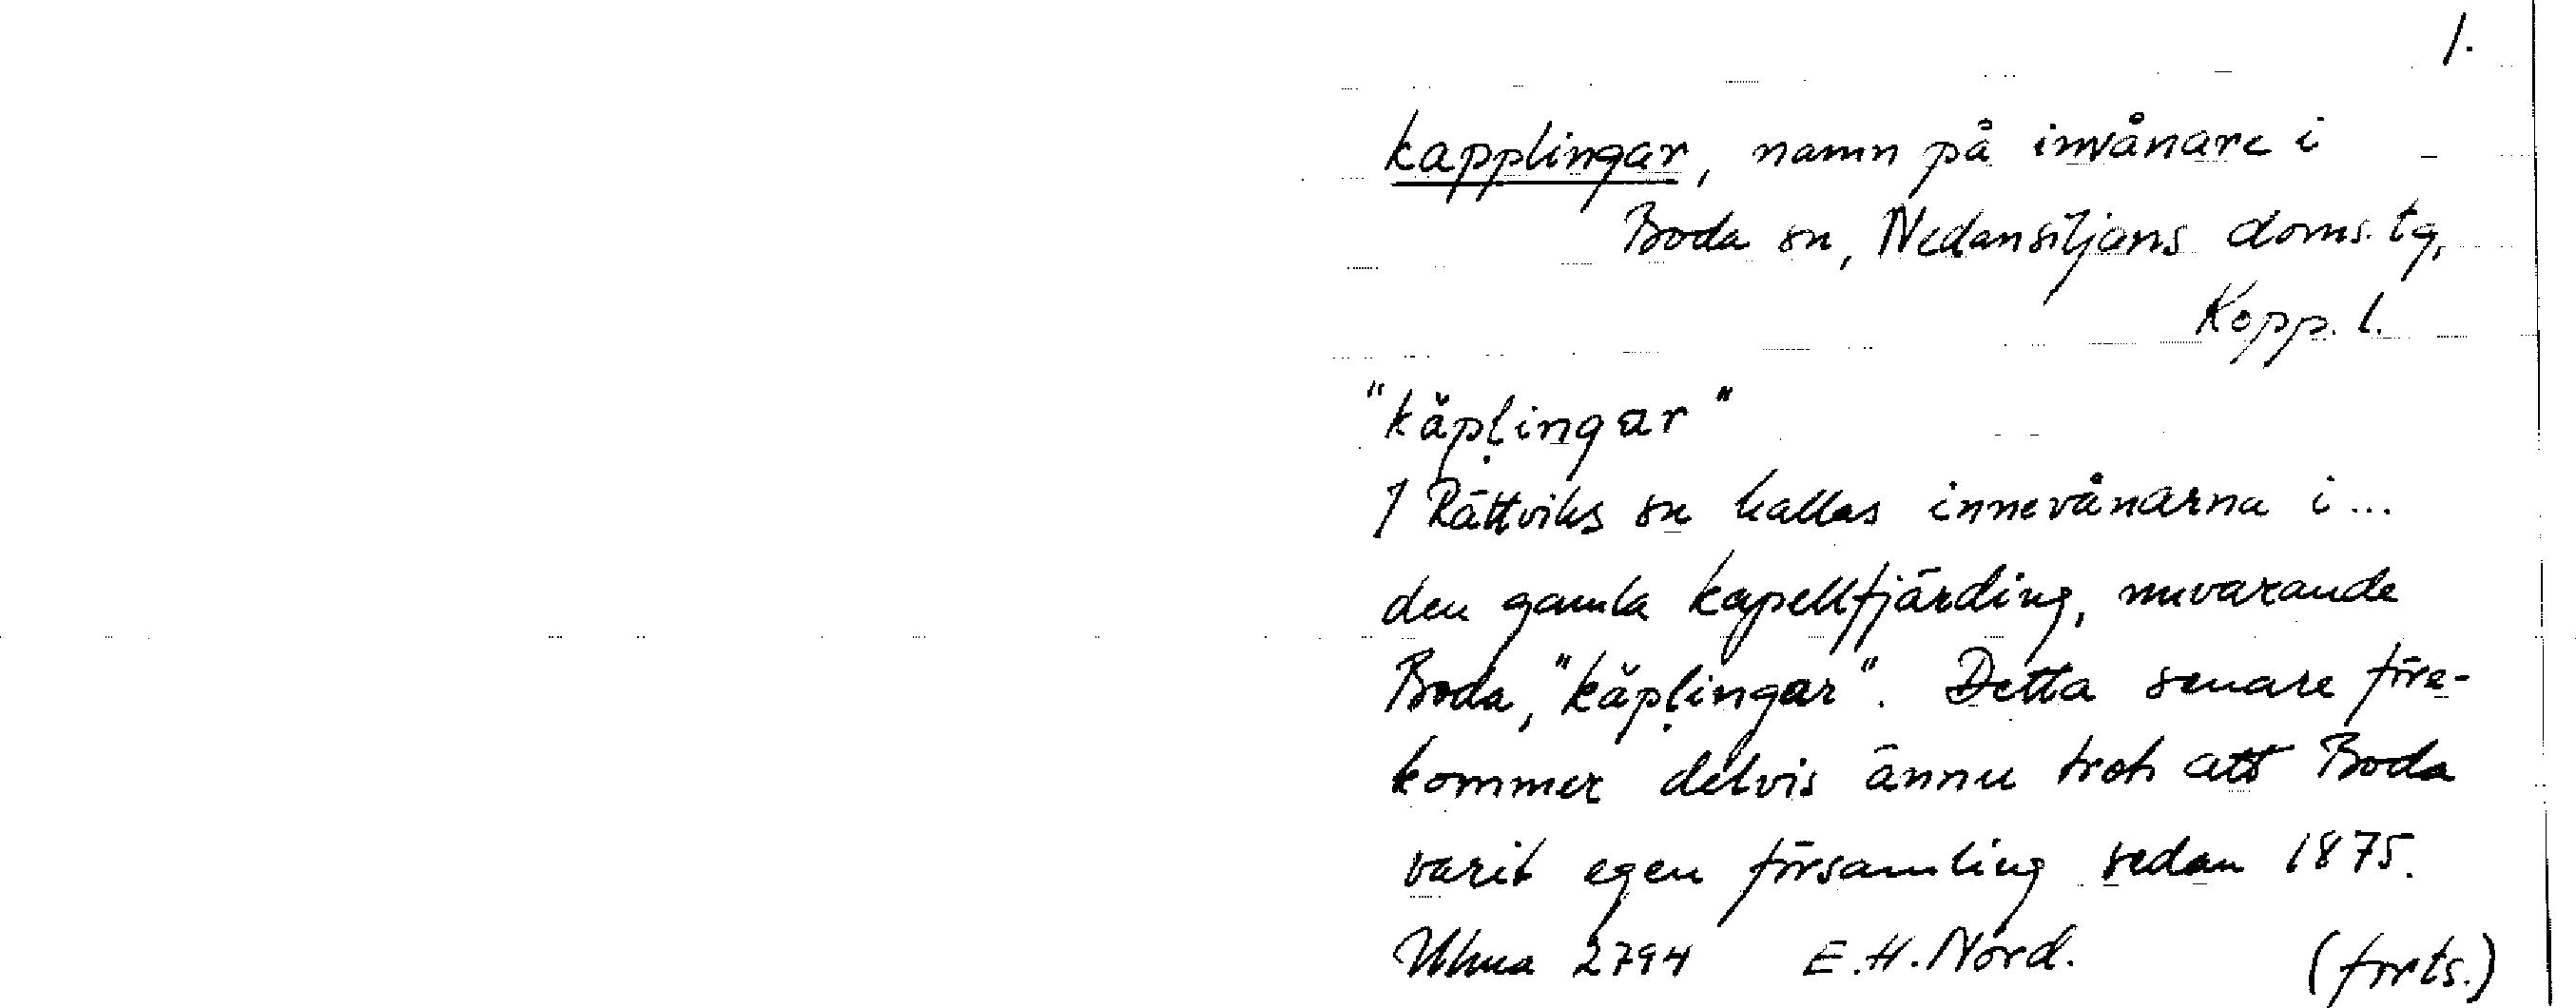 1.
kapplingar, namn på invånare i
Boda sn, Nedansiljans doms. tg,
Kopp. l.
"kăpḷingar"
I Rättviks sn kallas innevånarna i ...
den gamla kapellfjärding, nuvarande
Boda, "kăpḷingar". Detta senare före-
kommer delvis ännu trots att Boda
varit egen församling sedan 1875.
Ulma 2794 E.H. Nord. (forts.)